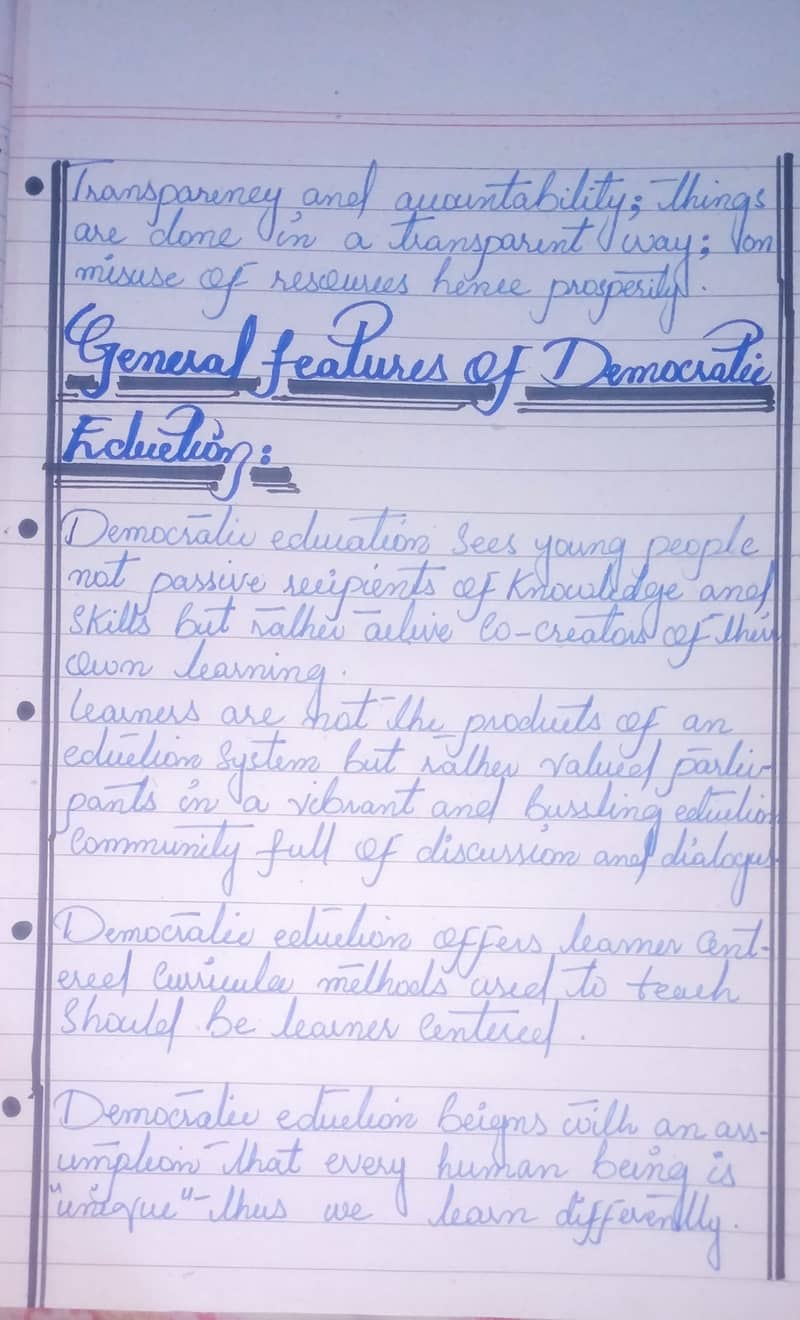 Transparency and accountability; things
are done in a transparent way; on
misuse of resources hence prosperity.
General features of Democratic
Eduction:
Democratic education sees young people
not passive recipients of knowledge and
skills but rather active Co-creators of their
own learning.
learners are not the products of an
eduction system but rather valued partici-
pants in a vibrant and bussling eduction
community full of discussion and dialogue
Democratic eduction offers learner cent-
ered curricula methods used to teach
should be learner centered.
Democratic eduction beigns with an ass-
umption that every human being is
"unique" - thus we learn differently.